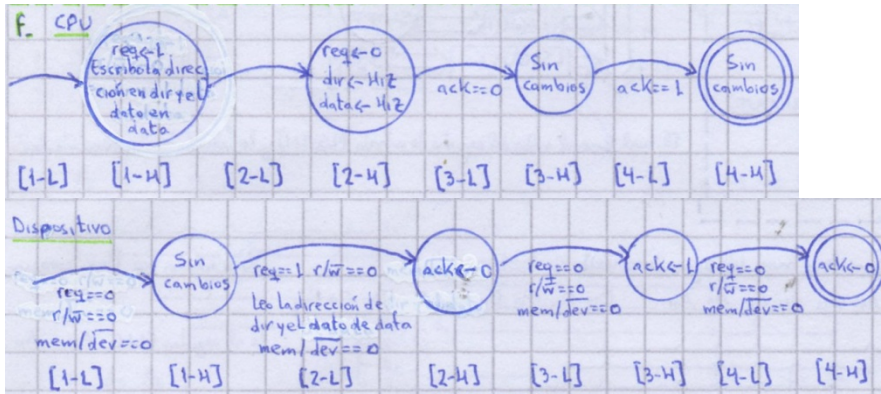 F. CPU
req←1
Escribo la direc-
ción en dir y el
dato en
data
req←0
dir←HiZ
data←HiZ
ack==0
Sin
cambios
ack==1
Sin
cambios
[1-L] [1-H] [2-L] [2-H] [3-L] [3-H] [4-L] [4-H]
Dispositivo
req==0
r/w̅==0
mem/d̅e̅v̅==0
Sin
cambios
req==1 r/w̅==0
Leo la dirección de
dir y el dato de data
mem/d̅e̅v̅==0
ack←0
req==0
r/w̅==0
mem/d̅e̅v̅==0
ack←1
req==0
r/w̅==0
mem/d̅e̅v̅==0
ack←0
[1-L] [1-H] [2-L] [2-H] [3-L] [3-H] [4-L] [4-H]